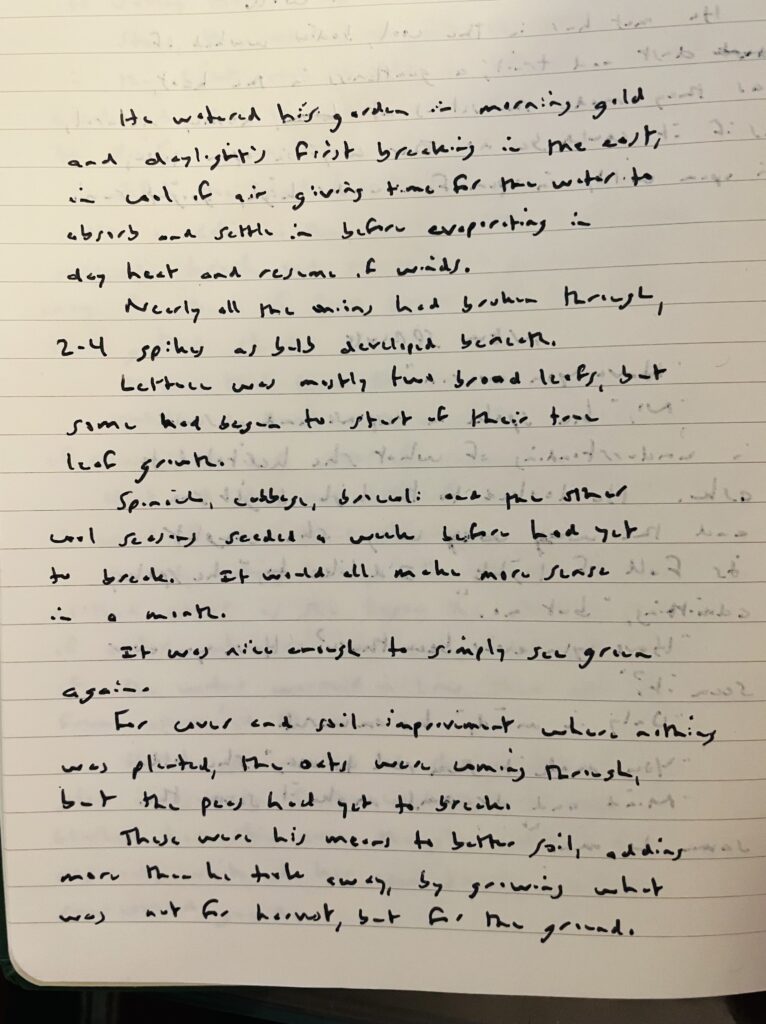 He watered his garden in morning gold
and daylight's first breaking in the east,
in cool of air giving time for the water to
absorb and settle in before evaporating in
day heat and resume of winds.
Nearly all the onions had broken through,
2-4 spikes as bulb developed beneath.
Lettuce was mostly two broad leafs, but
some had begun to start of their true
leaf growth.
Spinach, cabbage, broccoli and the other
cool seasons seeded a week before had yet
to break. It would all make more sense
in a month.
It was nice enough to simply see green
again.
For cover and soil improvement where nothing
was planted, the oats were coming through,
but the peas had yet to break.
These were his means to better soil, adding
more than he took away, by growing what
was not for harvest, but for the ground.